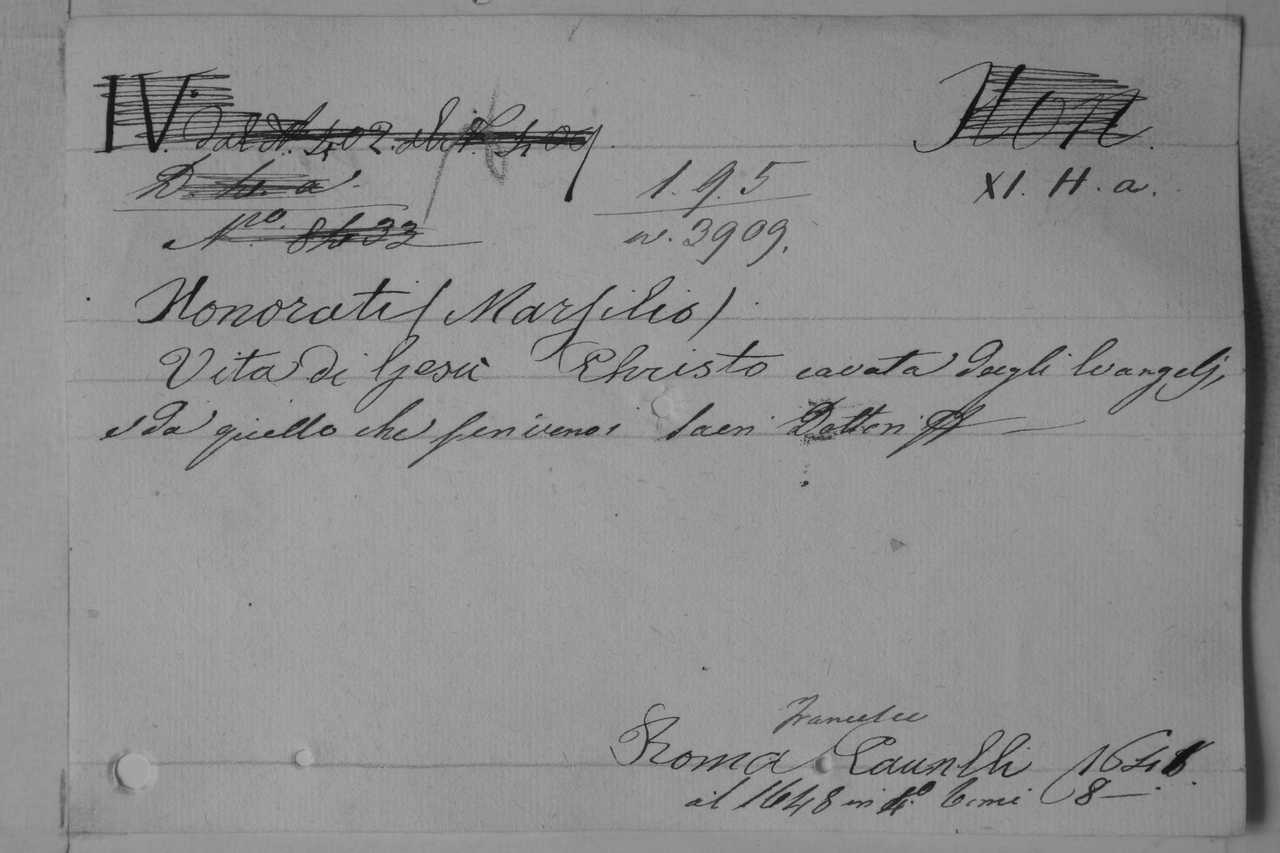 IV. dal N. 402. al N. 409. Hon.
D. 4. a. 1. 9. 5 XI. H. a.
N.ro 8433 n. 3909.
Honorati (Marsilio)
Vita di Gesù Christo cavata dagli Evangelj,
e da quello che scrivono i Sacri Dottori
Francesco
Roma Cavalli 1646
al 1648 in 4.º Tomi 8